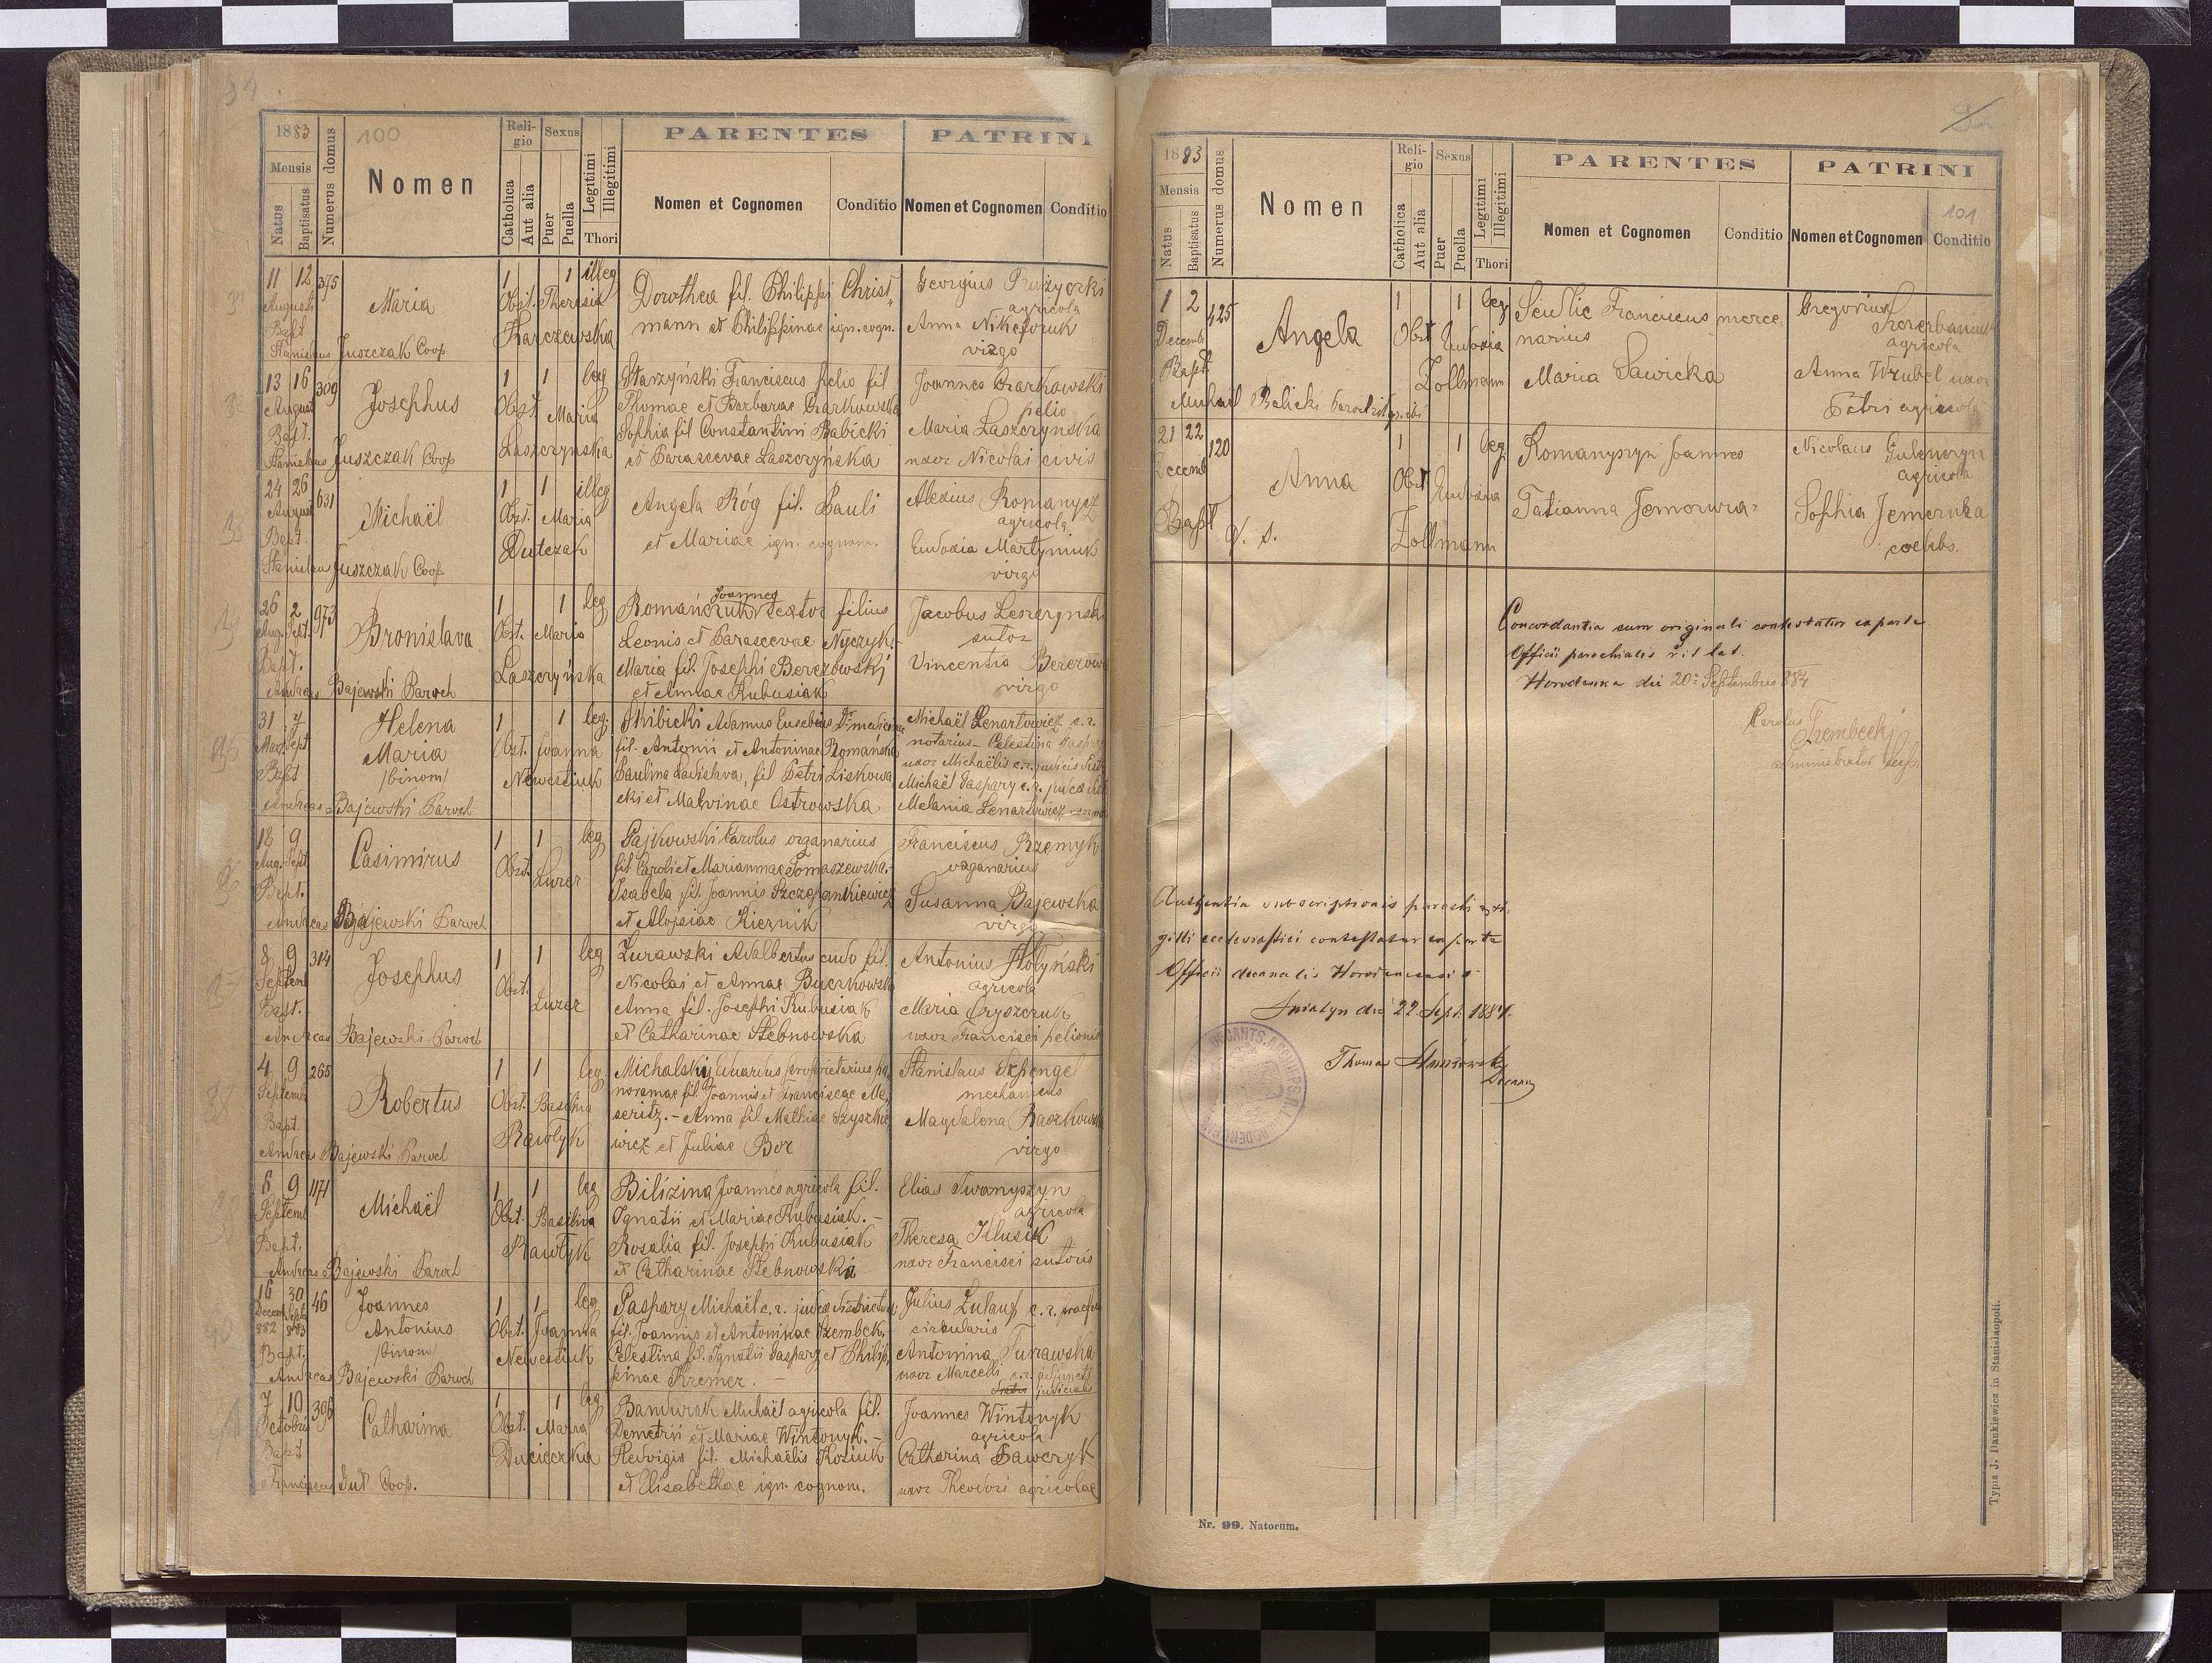 1883
100
Mensis
Natus
Baptisatus
Numerus domus
Nomen
Religio
Catholica
Aut alia
Sexus
Puer
Puella
Legitimi
Illegitimi
Thori
PARENTES
Nomen et Cognomen
Conditio
PATRINI
Nomen et Cognomen
Conditio
11 12 375
Augusti
Bapt
Stanislaus Juszczak Coop
Maria
1 1 illeg
Obst. Theresia
Karczewska
Dorothea fil. Philippi Christ„
mann et Philippinae ign. cogn.
Georgius
agricola
Anna Nikeforuk
virgo
13 16 309
August
Bapt.
Stanislaus Juszczak Coop
Josephus
1 1 leg
Obst. Maria
Laszczynska
Starzyński Franciscus pelio fil
Thomae et Barbarae Czarkowska
Sophia fil Constantini Babicki
et Parascevae Laszczyńska
Joannes Czarkowski
pelio
Maria Laszczynska
uxor Nicolai civis
24 26 631
August
Bapt.
Stanislaus Juszczak Coop.
Michaël
1 1 illeg
Obst. Maria
Dutczak
Angela Róg fil. Pauli
et Mariae ign. cognom.
Alexius Romanycz
agricola
Eudoxia Martyniuk
virgo
26 2 973
Aug. Sept.
Bapt.
Andreas Bajewski Paroch
Bronislava
1 1 leg
Obst. Maria
Laszczyńska
Joannes
Romańczuk textor filius
Leonis et Parascevae Nyczyk.-
Maria fil. Josephi Berezowski
et Annae Kubusiak
Jacobus Leszczynski
sutor
Vincentia
virgo
31 7
Sept
Bapt
Andreas Bajewski Paroch
Helena
Maria
/binom/
1 1 leg.
Obst. Joanna
Newestiuk
Skibicki Adamus Eusebius Dr medicinae
fil. Antonii et Antoninae Romańska
Paulina Ladislava, fil Petri Liskowa
cki et Malvinae Ostrowska
Michaël Lenartowicz c. r.
notarius - Celestina Gaspary
uxor Michaëlis c. r. judicis
Michaël Gaspary c. r. judex
Melania Lenartowicz
18 9
Aug. Sept
Bapt.
Andreas Bajewski Paroch
Casimirus
1 1 leg
Obst. Lurer
Pajkowski Carolus organarius
fil. Caroli et Mariannae Tomaszewska.
Isabela fil. Joannis Szczepankiewicz
et Aloysiae Kiernik
Franciscus Przemyk
organarius
Susanna Bajewska
virgo
8 9 314
Septemb
Bapt.
Andreas Bajewski Paroch
Josephus
1 1 leg
Obst.
Lurer
Zurawski Adalbertus cudo fil.
Nicolai et Annae Buczkowsk
Anna fil. Josephi Kubusiak
et Catharinae Stebnowska
Antonius Hołyński
agricola
Maria Oryszczuk
uxor Francisci pelionis
4 9 265
Septemb
Bapt.
Andreas Bajewski Paroch
Robertus
1 1 leg.
Obst. Bascha
Rawłyk
Michalski Eduardus proprietarius pa„
noramae fil. Joannis et Franciscae Me„
seritz. - Anna fil. Mathiae Szyszkie
wicz et Juliae Bor
Stanislaus Szpengel
mechanicus
Magdalena Raszkowska
virgo
8 9 1171
Septemb
Bapt.
Andreas Bajewski Paroch
Michaël
1 1 leg
Obst. Basilisa
Rawłyk
Bilizina Joannes agricola fil.
Ignatii et Mariae Kubusiak. -
Rosalia fil. Josephi Kubusiak
et Catharinae Stebnowska
Elias Iwanyszyn
agricola
Theresa Klusik
uxor Francisci sutoris
16 30 46
Decemb Septb
882 883
Bapt.
Andreas Bajewski Paroch
Joannes
Antonius
/binom/
1 1 leg
Obst. Joanna
Newestiuk
Gaspary Michaël c. r. judex districtus
fil. Joannis et Antoninae Szembek.
Celestina fil. Ignatii Gaspary et Philip„
pinae Kremer. -
Julius Zulauf c. r.
circularis
Antonina Turawska
uxor Marcelli c. r. adjuncti
judicialis
7 10 396
Octobris
Bapt
Franciscus Gut Coop.
Catharina
1 1 leg
Obst. Maria
Duciecka
Bandurak Michaël agricola fil.
Demetrii et Mariae Wintonyk. -
Hedvigis fil. Michaëlis Koziuk
et Elisabethae ign. cognom.
Joannes Wintonyk
agricola
Catharina Sawczyk
uxor Theodori agricolae
1883
Mensis
Natus
Baptisatus
Numerus domus
Nomen
Religio
Catholica
Aut alia
Sexus
Puer
Puella
Legitimi
Illegitimi
Thori
PARENTES
Nomen et Cognomen
Conditio
PATRINI
101
Nomen et Cognomen
Conditio
1 2 425
Decemb
Bapt
Michaël Belicki
Angela
1 1 leg
Obst Eudoxia
Zollmann
Seidlic Franciscus merce„
narius
Maria Sawicka
Gregorius
agricola
Anna Wrubel uxor
Petri agricolae
21 22 120
Decemb
Bapt q. s.
Anna
1 1 leg.
Obst Eudoxia
Zollmann
Romanyszyn Joannes
Tatianna
Nicolaus
agricola
Sophia Jemeruka
coelibs.
Concordantia cum originali contestatur ex parte
Officii parochialis rit lat.
Horodenka die 20a Septembris 884
Carolus Trembecki
administrator
Authentia subscriptionis parochi et si„
gilli ecclesiastici contestatur ex parte
Officii decanalis Horodencensis
Sniatyn die 22 Sept. 1884.
Thomas
Decanus
Nr. 99. Natorum.
Typis J. Dankiewicz in Stanislaopoli.